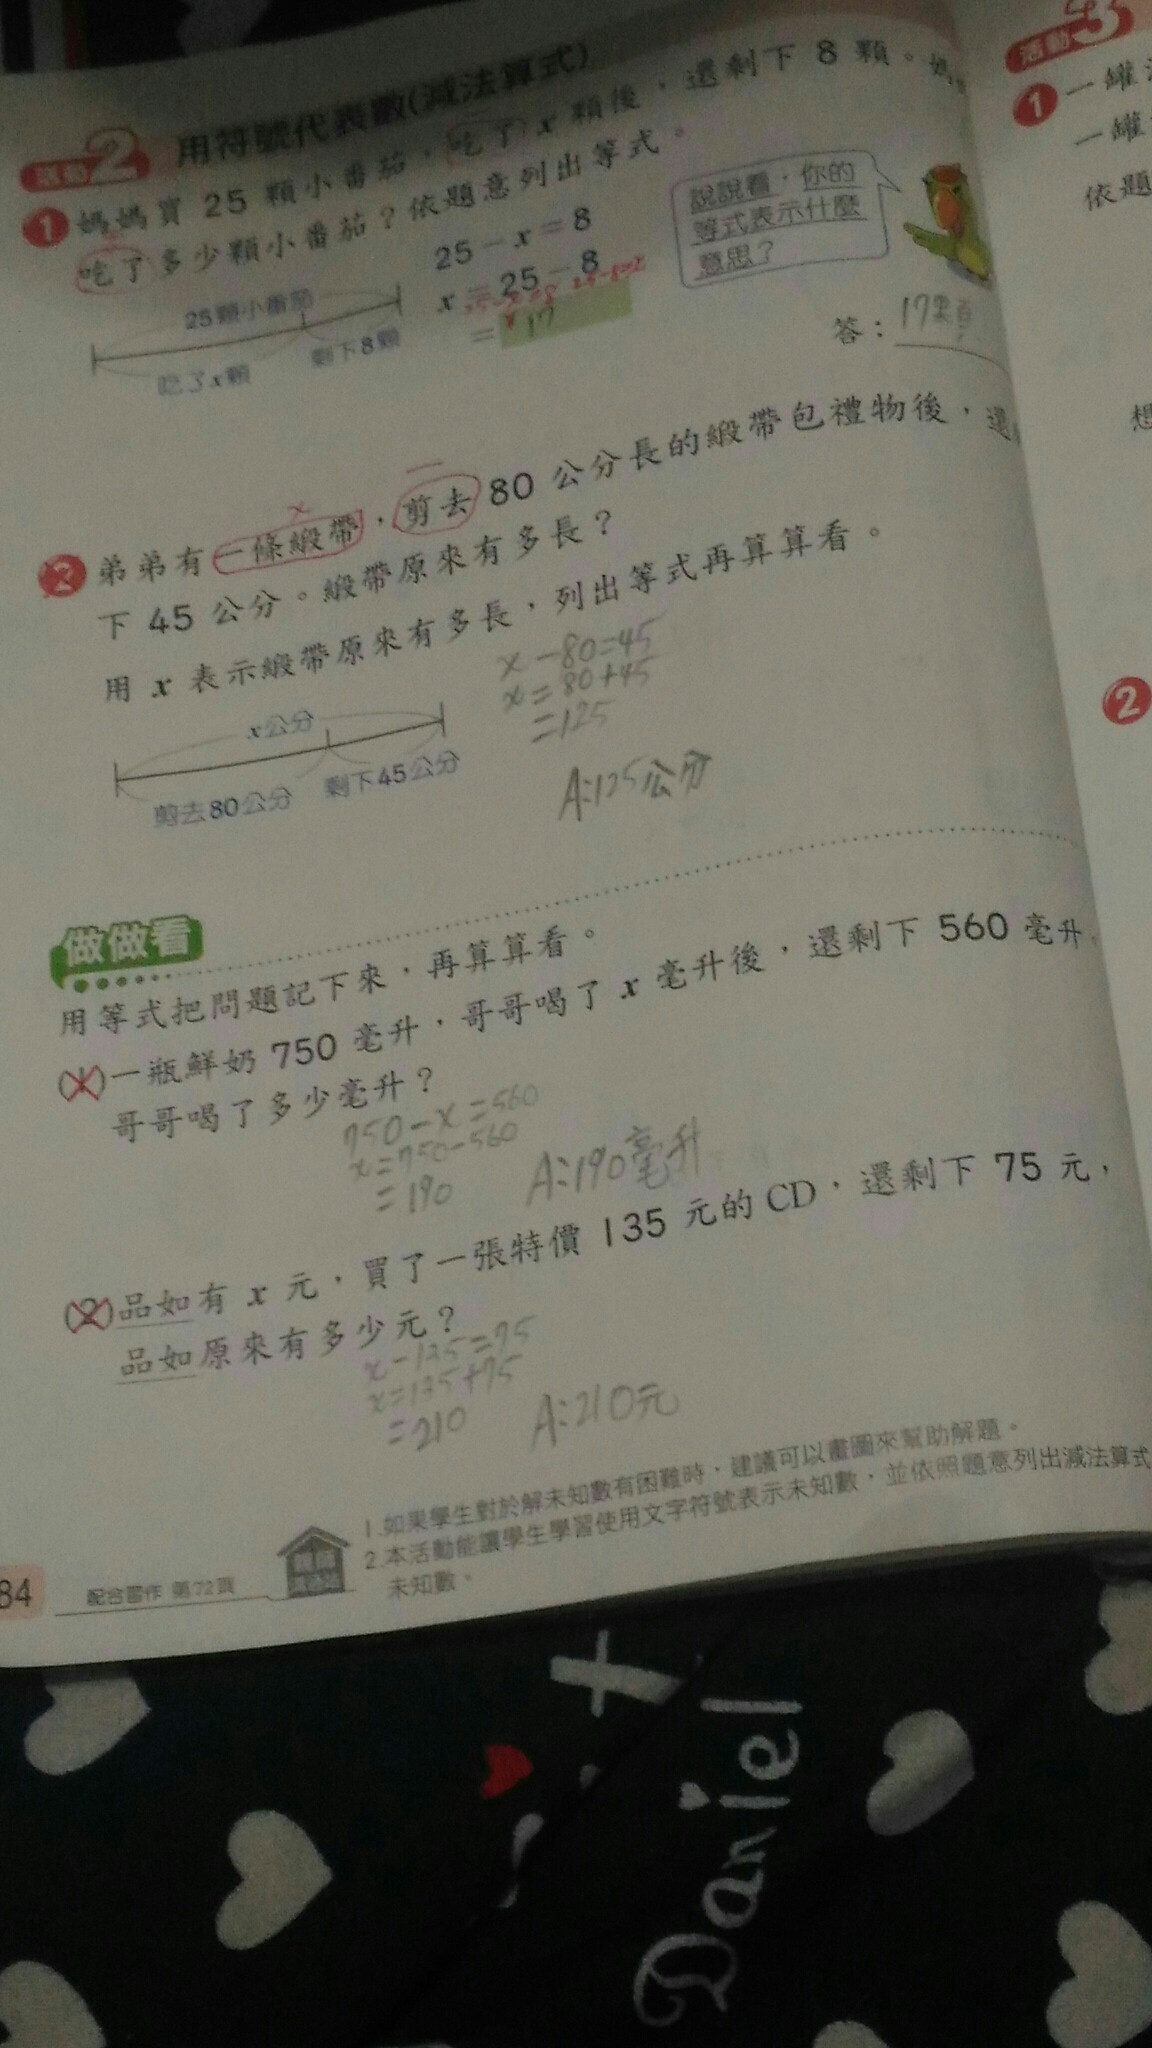 活動2 用符號代表數(減法算式)
1 媽媽買 25 顆小番茄，吃了 x 顆後，還剩下 8 顆。媽
吃了多少顆小番茄？依題意列出等式。
25－x＝8
x＝25－8
＝17
25顆小番茄
吃了x顆
剩下8顆
說說看，你的
等式表示什麼
意思？
答：17顆
2 弟弟有一條緞帶，剪去 80 公分長的緞帶包禮物後，還
x
下 45 公分。緞帶原來有多長？
用 x 表示緞帶原來有多長，列出等式再算算看。
x公分
剪去80公分
剩下45公分
x－80=45
x=80+45
=125
A:125公分
做做看
用等式把問題記下來，再算算看。
(1)一瓶鮮奶 750 毫升，哥哥喝了 x 毫升後，還剩下 560 毫升，
哥哥喝了多少毫升？
750－x=560
x=750-560
=190
A:190毫升
(2)品如有 x 元，買了一張特價 135 元的 CD，還剩下 75 元，
品如原來有多少元？
x－135=75
x=135+75
=210
A:210元
1.如果學生對於解未知數有困難時，建議可以畫圖來幫助解題。
2.本活動能讓學生學習使用文字符號表示未知數，並依照題意列出減法算式
未知數。
84
配合習作 第72頁
活動3
1 一罐
一罐
依題
想
2
Daniel